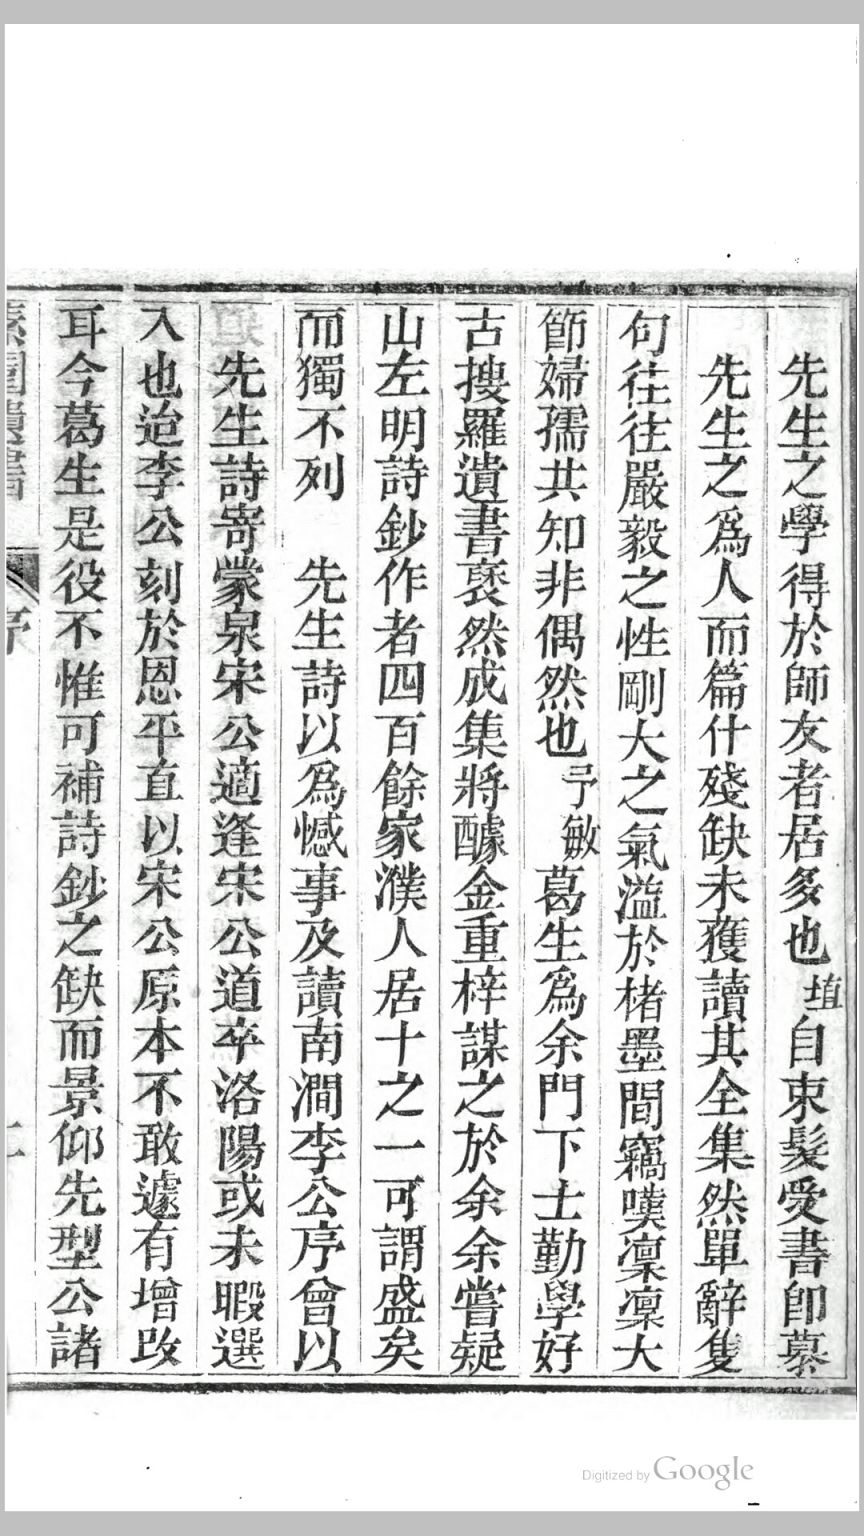 先生之學得於師友者居多也埴自束髮受書卽慕
先生之爲人而篇什殘缺未獲讀其全集然單辭隻
句往往嚴毅之性剛大之氣溢於楮墨間竊嘆凜凜大
節婦孺共知非偶然也予敏葛生爲余門下士勤學好
古搜羅遺書裒然成集將醵金重梓謀之於余余嘗疑
山左明詩鈔作者四百餘家濮人居十之一可謂盛矣
而獨不列　先生詩以爲憾事及讀南澗李公序曾以
先生詩寄蒙泉宋公適逢宋公道卒洛陽或未暇選
入也迨李公刻於恩平直以宋公原本不敢遽有增改
耳今葛生是役不惟可補詩鈔之缺而景仰先型公諸
序
Digitized by Google